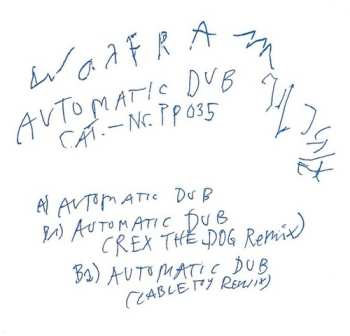 AUTOMATIC DUB
CAT.-Nr. PP035
A) AUTOMATIC DUB
B1) AUTOMATIC DUB
(REX THE DOG Remix)
B2) AUTOMATIC DUB
(CABLETOY REMIX)